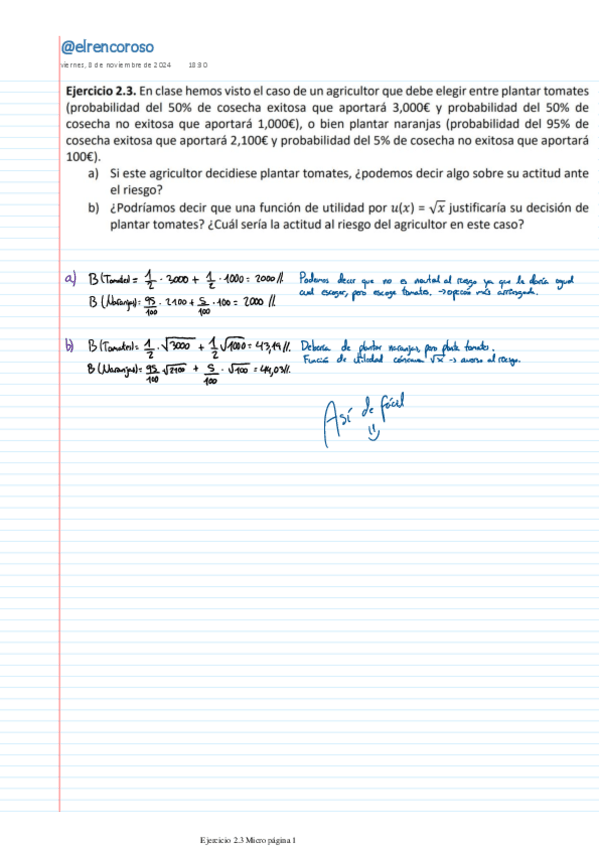 @elrencoroso
viernes, 8 de noviembre de 2024 18:30
Ejercicio 2.3. En clase hemos visto el caso de un agricultor que debe elegir entre plantar tomates
(probabilidad del 50% de cosecha exitosa que aportará 3,000€ y probabilidad del 50% de
cosecha no exitosa que aportará 1,000€), o bien plantar naranjas (probabilidad del 95% de
cosecha exitosa que aportará 2,100€ y probabilidad del 5% de cosecha no exitosa que aportará
100€).
a) Si este agricultor decidiese plantar tomates, ¿podemos decir algo sobre su actitud ante
el riesgo?
b) ¿Podríamos decir que una función de utilidad por u(x) = √x justificaría su decisión de
plantar tomates? ¿Cuál sería la actitud al riesgo del agricultor en este caso?
a) B(Tomates) = 1/2 · 3000 + 1/2 · 1000 = 2000 //. Podemos decir que no es neutral al riesgo ya que le daría igual
cual escoger, pero escoge tomates. → opción más arriesgada.
B(Naranjas) = 95/100 · 2100 + 5/100 · 100 = 2000 //.
b) B(Tomates) = 1/2 · √3000 + 1/2 √1000 = 43,19 //. Debería de plantar naranjas, pero planta tomates.
Función de utilidad cóncava √x → averso al riesgo.
B(Naranjas) = 95/100 √2100 + 5/100 · √100 = 44,03 //.
Así de fácil
Ejercicio 2.3 Micro página 1